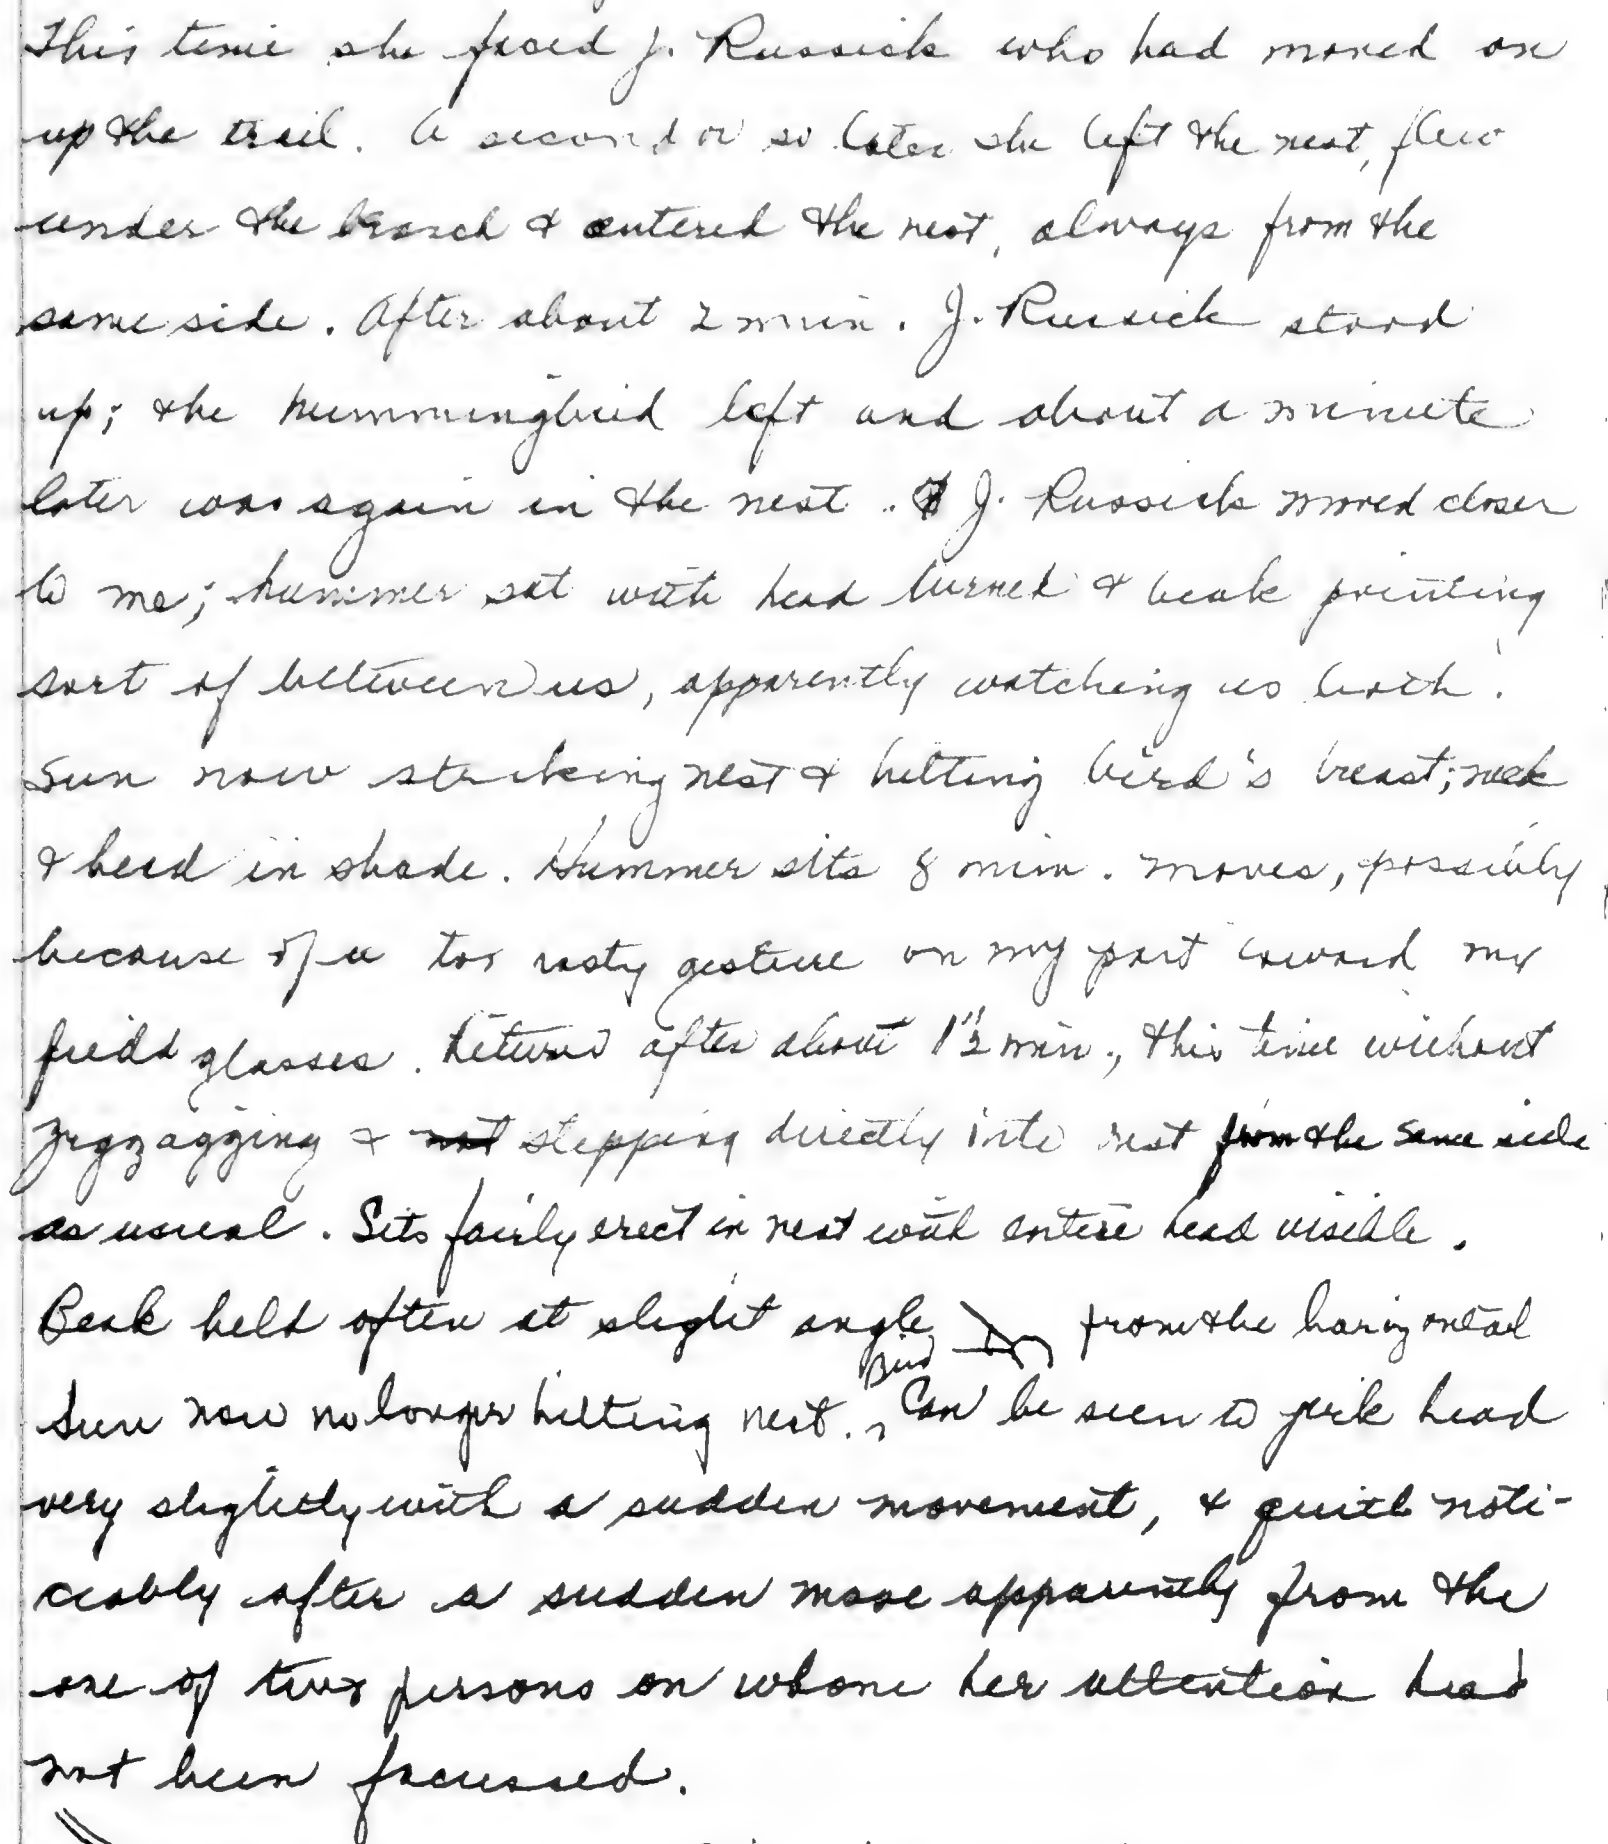 This time she faced J. Russick who had moved on
up the trail. A second or so later she left the nest, flew
under the branch & entered the nest, always from the
same side. After about 2 min. J. Russick stood
up; the hummingbird left and about a minute
later was again in the nest. J. Russick moved closer
to me; hummer sat with head turned & beak pointing
sort of between us, apparently watching us both.
Sun now striking nest & hitting bird's breast; neck
& head in shade. Hummer sits 8 min. moves, possibly
because of a too hasty gesture on my part toward my
field glasses. Returns after about 1 1/2 min., this time without
zigzagging & not stepping directly into nest from the same side
as usual. Sits fairly erect in nest with entire head visible.
Beak held often at slight angle from the horizontal
Sun now no longer hitting nest. Bird can be seen to jerk head
very slightly with a sudden movement, & quite noti-
ceably after a sudden move apparently from the
one of two persons on whom her attention had
not been focussed.